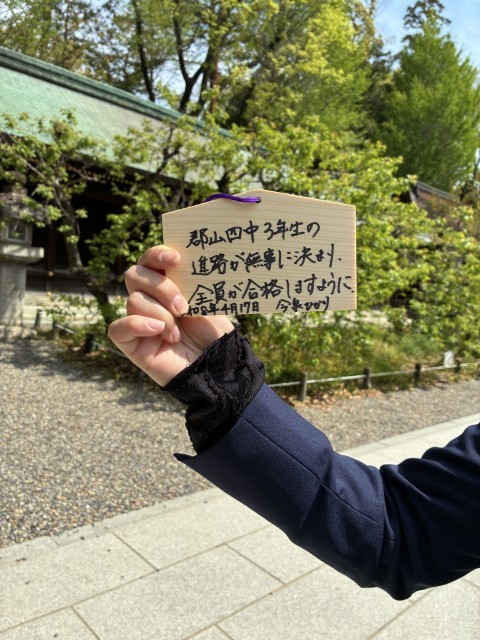 郡山四中3年生の
進路が無事に決まり、
全員が合格しますように。
R08年4月17日 今泉ひかり